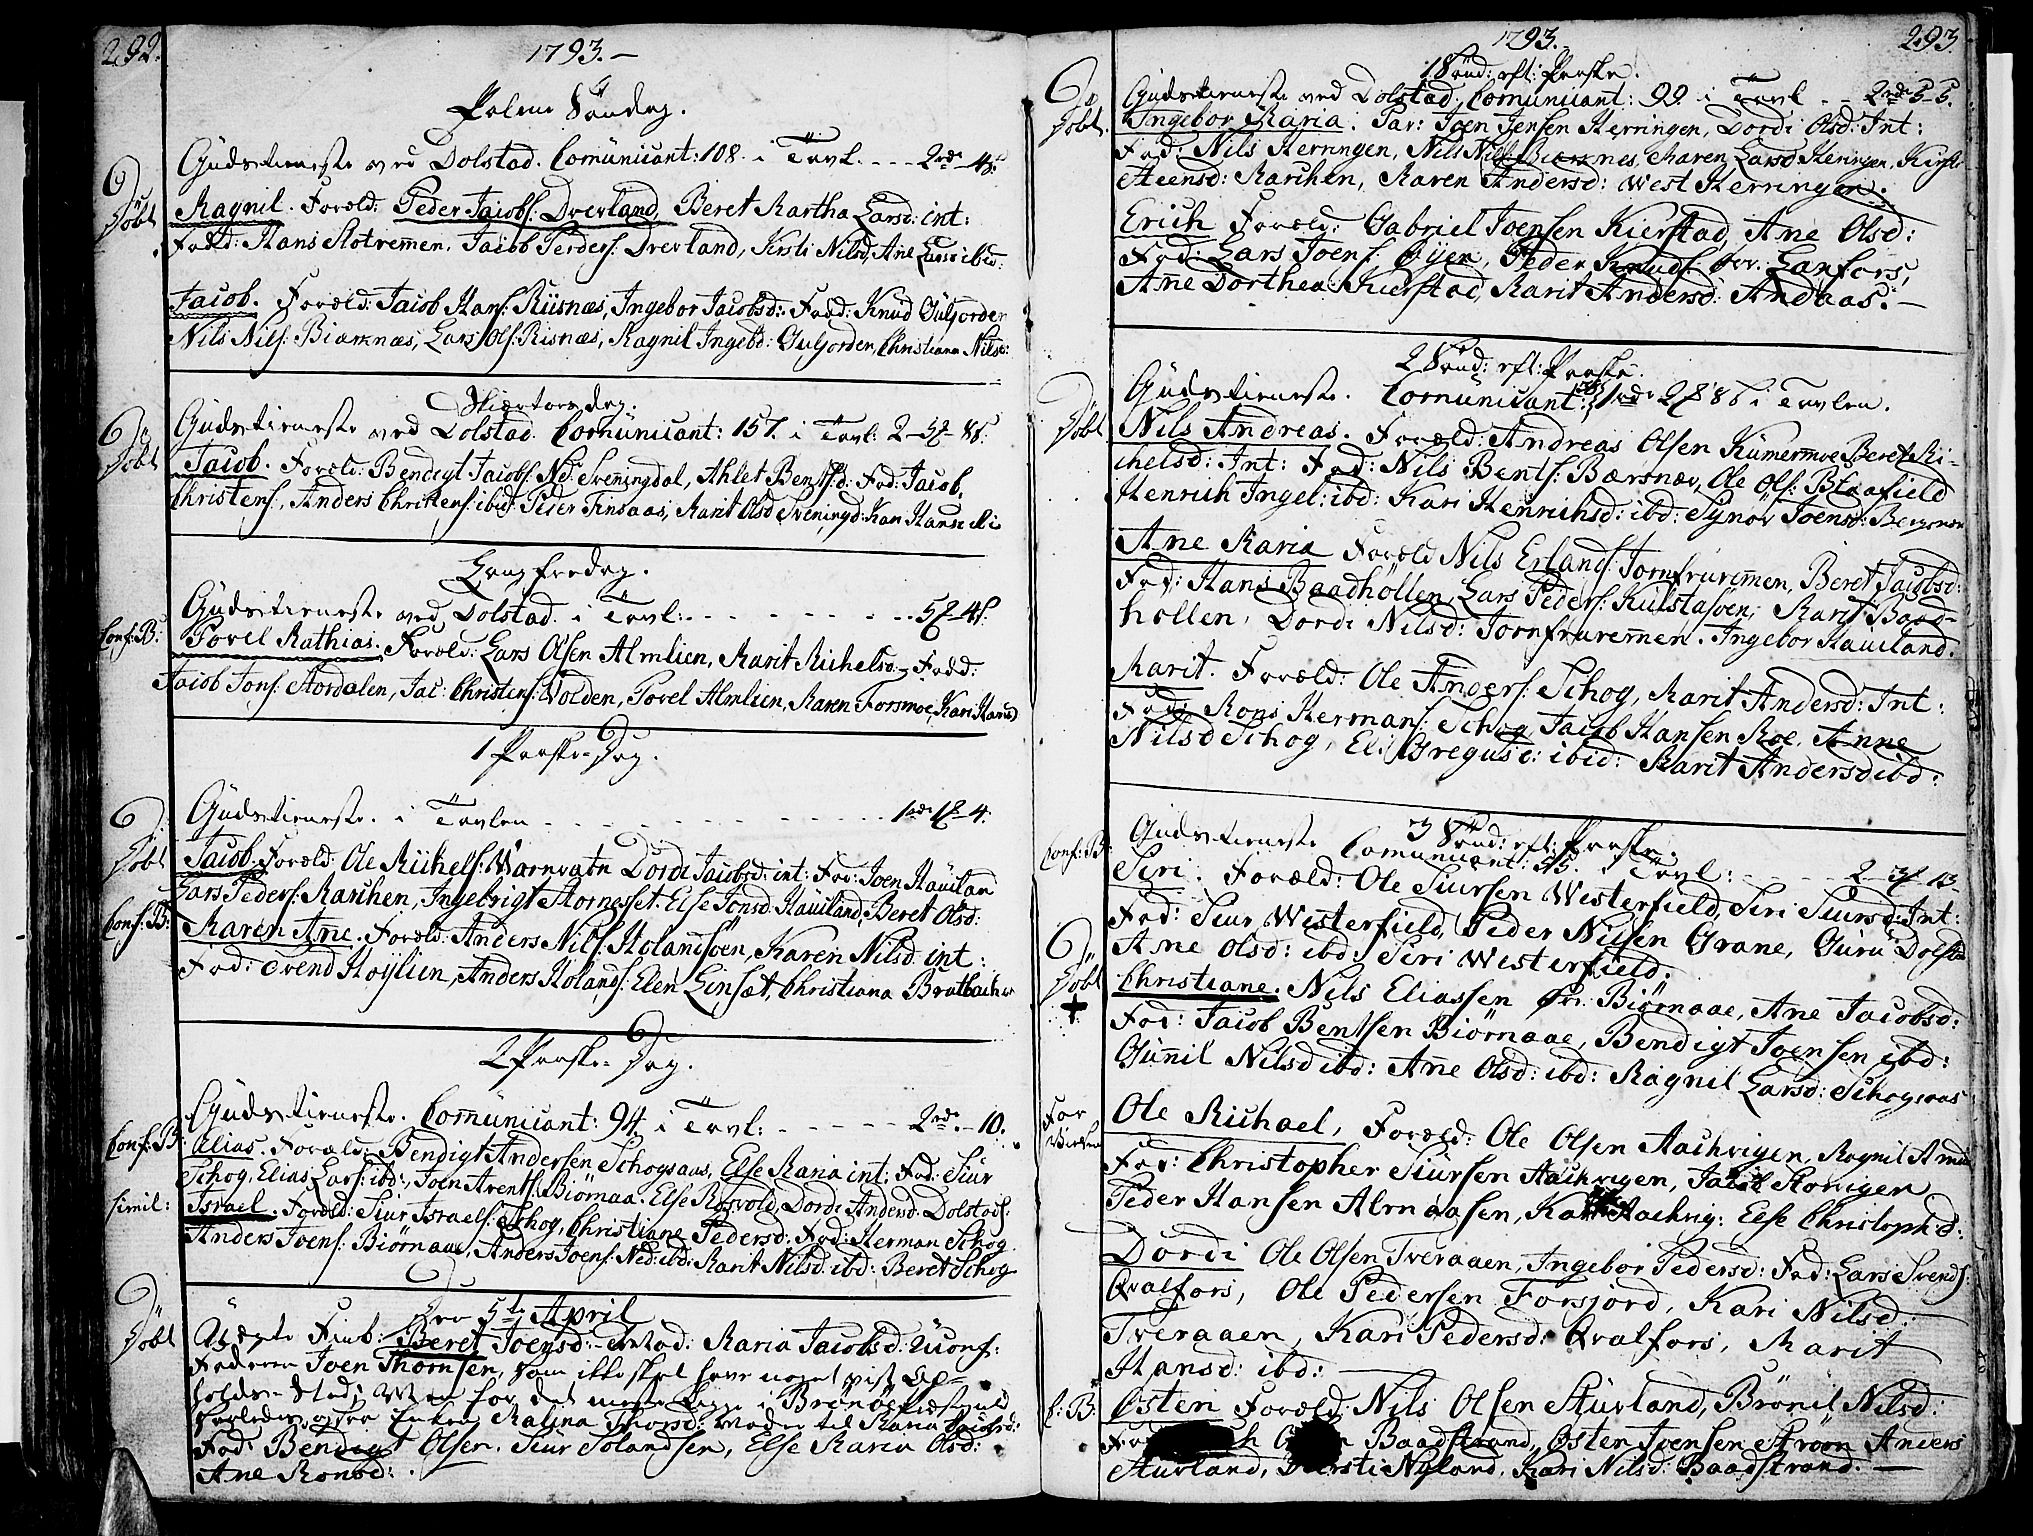 292.
1793.
Palme Söndag.
Gudstieneste ved Dolstad. Comunicant: 108. i Tavl. - - - 2rd - 4s.
Döbt
Ragnil. Foræld: Peder Jacobs: Drevland, Beret Martha Larsd: int:
Fad: Hans Slotremen. Jacob Peders: Drevland, Kirsti Nilsd, Ane Larsd ibid:
Jacob. Foræld: Jacob Hans: Riisnæs, Ingebor Jacobsd: Fad: Knud Guljorden
Nils Nils: Biarknæs, Lars Ols: Risnæs, Ragnil Ingebd: Guljorden, Christiana Nilsd:
Skiertorsdag.
Gudstieneste ved Dolstad. Comunicant: 157. i Tavl: 2
Döbt
Jacob. Foræld: Bendigt Jacobs: Ned: Sveningdal, Ahlet Bentsd: Fad: Jacob
Christens:, Anders Christens: ibid: Peder Finsaas, Marit Olsd Sveningd: Kari Hansd
Langfredag.
Gudstieneste ved Dolstad. i Tavl: - - - - - - -
Conf: B:
Povel Mathias. Foræld: Lars Olsen Almlien, Marit Michelsd: Fad:
Jacob Jons: Stordalen, Jac: Christens: Volden, Povel Almlien, Maren Forsmoe, Kari Hansd
1 Paaske-Dag.
Gudstieneste. i Tavlen - - - - - - -
Döbt
Jacob. Foræld: Ole Michels: Varnvatn Dordi Jacobsd: int: Fad: Joen Haviland
Lars Peders: Marchen, Ingebrigt Stornesset. Else Jonsd. Haviland, Beret Olsd:
Conf: B:
Maren Ane. Foræld: Anders Nils: Holandsöen, Karen Nilsd. int:
Fad: Svend Höylien, Anders Holands: Elen Linsæt, Christiana Bratbachen
2 Paaske-Dag.
Gudstieneste. Comunicant: 94. i Tavl: - - - - - 2rd. - 10.
Conf: B:
Elias. Foræld: Bendigt Andersen Schogsaas, Else Maria int: Fad: Siur
Schog, Elias Lars: ibd:, Joen Arents: Biörnaa. Else Rosvold, Dordi Andersd. Dolstad:
simil:
Israel. Foræld: Siur Israels: Schog, Christiane Pedersd: Fad: Herman Schog
Anders Joens: Biörnaae, Anders Joens: Ned: ibd: Marit Nilsd: ibd: Beret Schog
Den 5te April
Döbt
Uægte Fød: Beret Joensd: Mod: Maria Jacobsd: Uconf:
Faderen Joen Thomsen, som ikke skal have noget vist Op-
holds-Sted; Men for det meste ligge i Brönöe Præstegield
Enken Malina Thorsd: Moder til Maria Jacobsd:
Fad: Bendigt Olsen. Siur Tolandsen, Else Maria Olsd:
Ane Monsd: .
293.
1793.
1 Sönd: eft: Paaske.
Gudstieneste ved Dolstad. Comunicant: 99. i Tavl - 2rd
Döbt
Ingebor Maria. Par: Joen Jensen Herringen, Dordi Olsd: Int:
Fad: Nils Herringen, Nils Nils: Biarknes, Maren Larsd Herringen, Kirsti
Steensd: Marchen, Maren Andersd: West Herringen.
Erich Foræld: Gabriel Joensen Kierstad, Ane Olsd:
Fad: Lars Joens: Öyen, Peder Knuds: Öv: Lanfors,
Ane Dorthea Kierstad, Marit Andersd: Andaas. -
2 Sönd: eft: Paaske.
Gudstieneste. Comunicant: i Tavlen.
Döbt
Nils Andreas. Foræld: Andreas Olsen Kumermoe, Beret Mi-
chelsd: Int: Fad: Nils Bents: Bærsnæv, Ole Ols: Blaafield
Henrich Ingel: ibd: Kari Henrichsd: ibd: Synöv Joensd:
Ane Maria Foræld Nils Erlands: Jomfruremen, Beret Jacobsd:
Fad: Hans Baadhöllen, Lars Peders: Kulstasöen; Marit Baad-
höllen, Dordi Nilsd: Jomfruremen. Ingebor Haviland.
Marit. Foræld: Ole Anders: Schog, Marit Andersd: Int:
Fad: Mons Hermans: Schog, Jacob Hansen Moe. Anne
Nilsd Schog, Eli Gregusd: ibid: Marit Andersd ibd:
3 Sönd: eft: Paaske.
Gudstieneste Comunicant: 55. i Tavl: - - - -
Conf: B:
Siri. Foræld: Ole Siursen Westerfield, Siri Siursd: Int:
Fad: Siur Westerfield, Peder Nilsen Grane, Guru Dolstad
Ane Olsd: ibd: Siri Westerfield.
Döbt
+
Christiane. Nils Eliassen Öv: Biörnaae, Ane Jacobsd:
Fad: Jacob Bentsen Biörnaae, Bendigt Joensen ibd:
Gunil Nilsd ibd: Ane Olsd: ibd: Ragnil Larsd: Schogsaas
Ole Michael, Foræld: Ole Olsen Aachvigen, Magnil
Fad: Christopher Siursen Aachvigen, Jacob
Peder Hansen Almaasen, Aachvig: Else Christophd:
Dordi Ole Olsen Tveraaen, Ingebor Pedersd: Fad: Lars Svends:
Qvalfors, Ole Pedersen Forsjord, Kari Nilsd:
Tveraaen, Kari Pedersd: Qvalfors, Marit
Hansd: ibd:
C: B:
Östen Foræld: Nils Olsen Stuvland, Brönil Nilsd:
Fad Baadstrand, Östen Joensen Anders
Stuvland, Kirsti Nyland, Kari Nilsd: Baadstrand. -